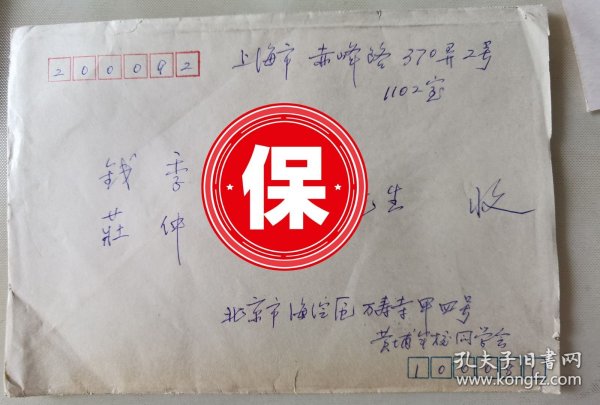 200092
上海市 赤峰路 370弄2号
1102室
钱 李
莊 仲
保
生 收
北京市海淀区万寿寺甲四号
黄埔军校同学会
1000
孔夫子旧书网
www.kongfz.com